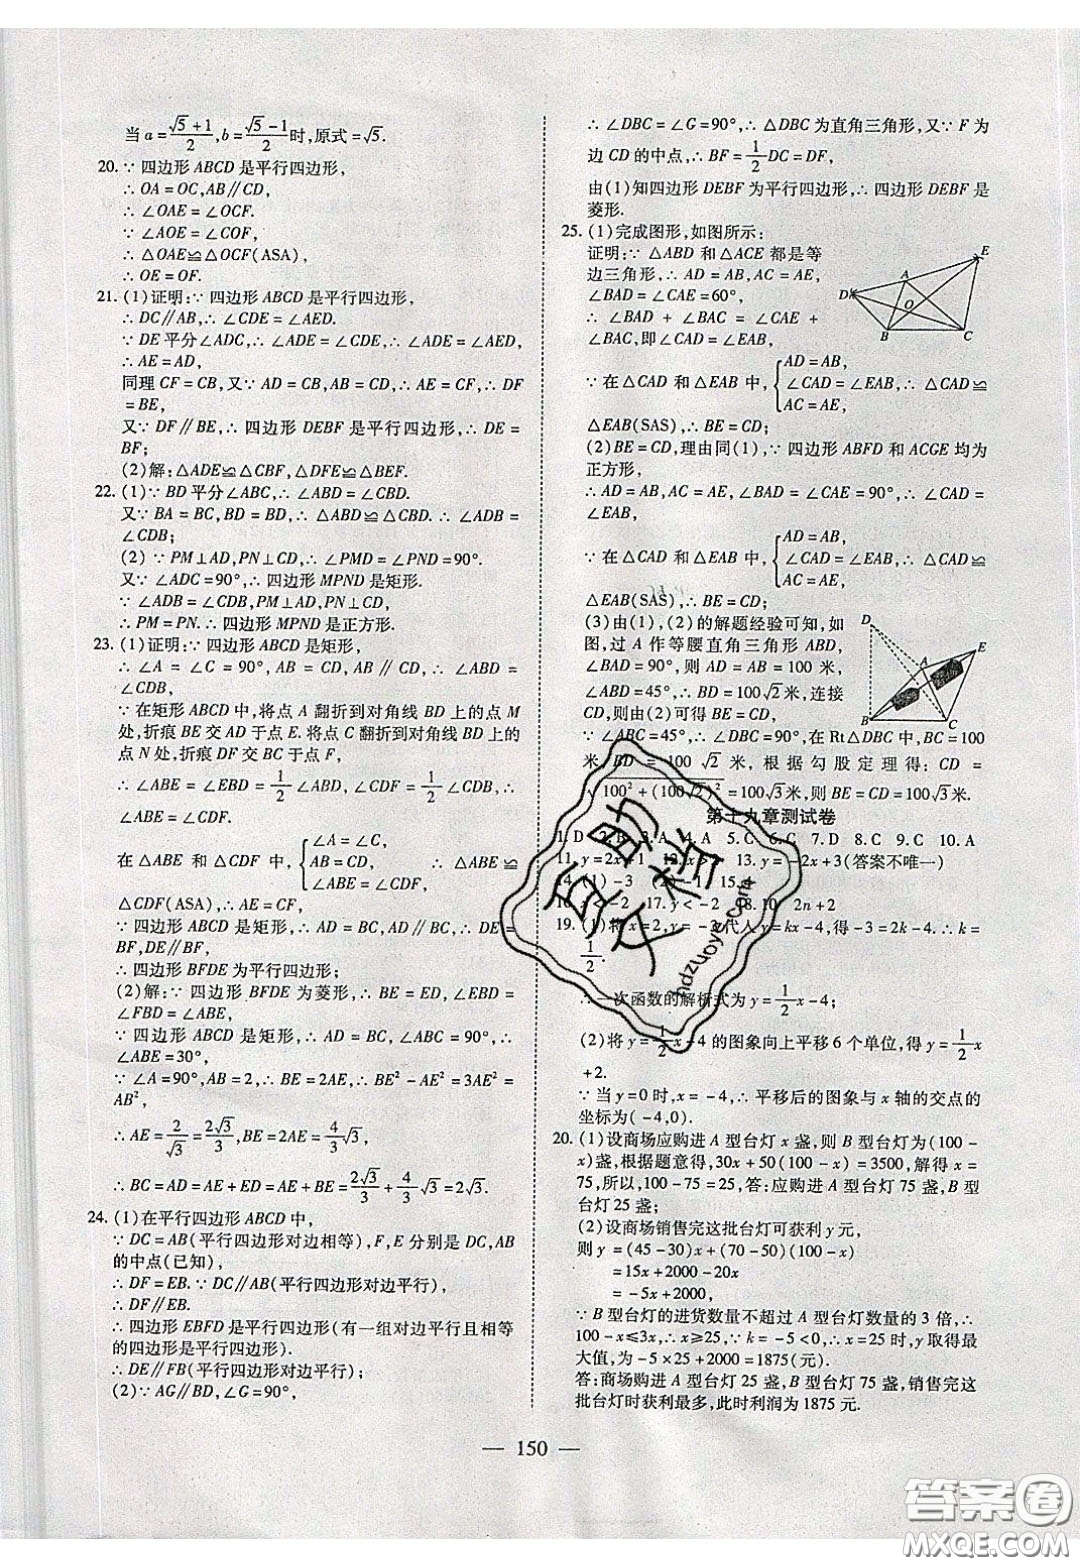 当 a = (√5+1)/2, b = (√5-1)/2 时,原式 = √5.
20. ∵ 四边形 ABCD 是平行四边形,
∴ OA = OC, AB∥CD,
∴ ∠OAE = ∠OCF.
∵ ∠AOE = ∠COF,
∴ △OAE≌△OCF(ASA),
∴ OE = OF.
21. (1)证明:∵ 四边形 ABCD 是平行四边形,
∴ DC∥AB, ∴ ∠CDE = ∠AED.
∵ DE 平分∠ADC, ∴ ∠ADE = ∠CDE, ∴ ∠ADE = ∠AED,
∴ AE = AD,
同理 CF = CB,又∵ AD = CB, ∴ AE = CF, ∴ DF
= BE,
又∵ DF∥BE, ∴ 四边形 DEBF 是平行四边形, ∴ DE =
BF;
(2)解:△ADE≌△CBF, △DFE≌△BEF.
22. (1)∵ BD 平分∠ABC, ∴ ∠ABD = ∠CBD.
又∵ BA = BC, BD = BD, ∴ △ABD≌△CBD. ∴ ∠ADB =
∠CDB;
(2) ∵ PM⊥AD, PN⊥CD, ∴ ∠PMD = ∠PND = 90°.
又∵ ∠ADC = 90°, ∴ 四边形 MPND 是矩形.
∵ ∠ADB = ∠CDB, PM⊥AD, PN⊥CD,
∴ PM = PN. ∴ 四边形 MPND 是正方形.
23. (1)证明:∵ 四边形 ABCD 是矩形,
∴ ∠A = ∠C = 90°, AB = CD, AB∥CD, ∴ ∠ABD =
∠CDB,
∵ 在矩形 ABCD 中,将点 A 翻折到对角线 BD 上的点 M
处,折痕 BE 交 AD 于点 E. 将点 C 翻折到对角线 BD 上的
点 N 处,折痕 DF 交 BC 于点 F,
∴ ∠ABE = ∠EBD = 1/2 ∠ABD, ∠CDF = 1/2 ∠CDB,
∴ ∠ABE = ∠CDF.
在 △ABE 和 △CDF 中, { ∠A = ∠C, AB = CD, ∠ABE = ∠CDF, ∴ △ABE ≌
△CDF(ASA), ∴ AE = CF,
∵ 四边形 ABCD 是矩形, ∴ AD = BC, AD∥BC, ∴ DE =
BF, DE∥BF,
∴ 四边形 BFDE 为平行四边形;
(2)解:∵ 四边形 BFDE 为菱形, ∴ BE = ED, ∠EBD =
∠FBD = ∠ABE,
∵ 四边形 ABCD 是矩形, ∴ AD = BC, ∠ABC = 90°, ∴
∠ABE = 30°,
∵ ∠A = 90°, AB = 2, ∴ BE = 2AE, ∴ BE² - AE² = 3AE² =
AB²,
∴ AE = 2/√3 = 2√3/3, BE = 2AE = 4/3 √3,
∴ BC = AD = AE + ED = AE + BE = 2√3/3 + 4/3 √3 = 2√3.
24. (1)在平行四边形 ABCD 中,
∵ DC = AB(平行四边形对边相等), F, E 分别是 DC, AB
的中点(已知),
∴ DF = EB. ∵ DC∥AB(平行四边形对边平行),
∴ DF∥EB.
∴ 四边形 EBFD 是平行四边形(有一组对边平行且相等
的四边形是平行四边形).
∴ DE∥FB(平行四边形对边平行);
(2)∵ AG∥BD, ∠G = 90°,
∴ ∠DBC = ∠G = 90°, ∴ △DBC 为直角三角形,又∵ F 为
边 CD 的中点, ∴ BF = 1/2 DC = DF,
由(1)知四边形 DEBF 为平行四边形, ∴ 四边形 DEBF 是
菱形.
25. (1)完成图形,如图所示:
证明:∵ △ABD 和 △ACE 都是等
边三角形, ∴ AD = AB, AC = AE,
∠BAD = ∠CAE = 60°,
∴ ∠BAD + ∠BAC = ∠CAE +
∠BAC,即∠CAD = ∠EAB,
∵ 在△CAD 和△EAB 中, { AD = AB, ∠CAD = ∠EAB, AC = AE, ∴ △CAD≌
△EAB(SAS), ∴ BE = CD;
(2) BE = CD,理由同(1), ∵ 四边形 ABFD 和 ACGE 均为
正方形,
∴ AD = AB, AC = AE, ∠BAD = ∠CAE = 90°, ∴ ∠CAD =
∠EAB,
∵ 在 △CAD 和 △EAB 中, { AD = AB, ∠CAD = ∠EAB, AC = AE, ∴ △CAD ≌
△EAB(SAS), ∴ BE = CD;
(3)由(1),(2)的解题经验可知,如
图,过 A 作等腰直角三角形 ABD,
∠BAD = 90°,则 AD = AB = 100 米,
∠ABD = 45°, ∴ BD = 100√2米,连接
CD,则由(2)可得 BE = CD,
∵ ∠ABC = 45°, ∴ ∠DBC = 90°,在 Rt△DBC 中, BC = 100
米, BD = 100 √2 米,根据勾股定理得: CD =
√(100² + (100√2)²) = 100√3米,则 BE = CD = 100√3米.
D A E O B C
D A E B C
第十九章测试卷
1. D 2. B 3. A 4. A 5. C 6. C 7. D 8. C 9. C 10. A
11. y = 2x + 1 13. y = -2x + 3(答案不唯一)
14. (1) -3 (2)
x < -2 17. y < -2 18. 10 2n + 2
19. (1)将 x = 2, y = -3 代入 y = kx - 4,得 -3 = 2k - 4. ∴ k =
1/2.
∴ 一次函数的解析式为 y = 1/2 x - 4;
(2)将 y = 1/2 x - 4 的图象向上平移 6 个单位,得 y = 1/2 x
+ 2.
∵ 当 y = 0 时, x = -4, ∴ 平移后的图象与 x 轴的交点的
坐标为(-4,0).
20. (1)设商场应购进 A 型台灯 x 盏,则 B 型台灯为(100 -
x)盏,根据题意得, 30x + 50(100 - x) = 3500,解得 x =
75,所以, 100 - 75 = 25,答:应购进 A 型台灯 75 盏, B 型
台灯 25 盏;
(2)设商场销售完这批台灯可获利 y 元,
则 y = (45 - 30)x + (70 - 50)(100 - x)
= 15x + 2000 - 20x
= -5x + 2000,
∵ B 型台灯的进货数量不超过 A 型台灯数量的 3 倍,
∴ 100 - x ≤ 3x, ∴ x ≥ 25, ∵ k = -5 < 0, ∴ x = 25 时, y 取得最
大值,为 -5 × 25 + 2000 = 1875(元).
答:商场购进 A 型台灯 25 盏, B 型台灯 75 盏,销售完这
批台灯时获利最多,此时利润为 1875 元.
— 150 —
hdzuoye.com
答案圈
MXQE.COM